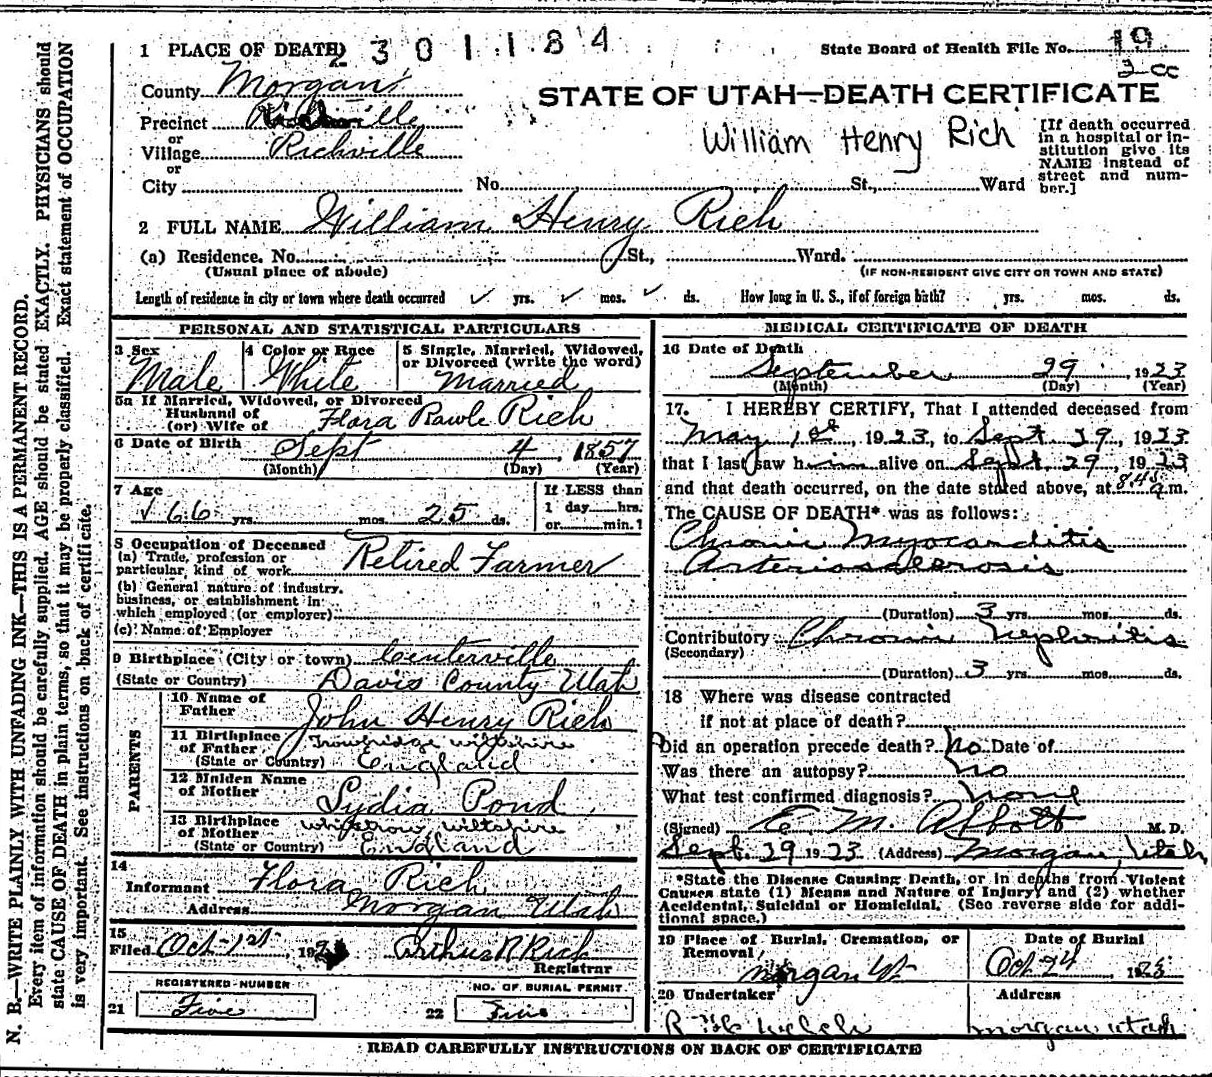 1 PLACE OF DEATH 2301184 State Board of Health File No. 19
2 cc
County Morgan
STATE OF UTAH—DEATH CERTIFICATE
Precinct Richville
or
Village Richville
William Henry Rich
[If death occurred in a hospital or institution give its NAME instead of street and number.]
or
City No. St., Ward
2 FULL NAME William Henry Rich
(a) Residence. No. St., Ward.
(Usual place of abode) (IF NON-RESIDENT GIVE CITY OR TOWN AND STATE)
Length of residence in city or town where death occurred ✓ yrs. ✓ mos. ✓ ds. How long in U. S., if of foreign birth? yrs. mos. ds.
PERSONAL AND STATISTICAL PARTICULARS
3 Sex
Male
4 Color or Race
White
5 Single, Married, Widowed,
or Divorced (write the word)
Married
5a If Married, Widowed, or Divorced
Husband of
(or) Wife of Flora Rawle Rich
6 Date of Birth Sept 4, 1857
(Month) (Day) (Year)
7 Age
✓ 66 yrs. mos. 25 ds.
If LESS than
1 day hrs.
or min.
8 Occupation of Deceased
(a) Trade, profession or
particular, kind of work Retired Farmer
(b) General nature of industry,
business, or establishment in
which employed (or employer)
(c) Name of Employer
9 Birthplace (City or town) Centerville
(State or Country) Davis County Utah
PARENTS
10 Name of
Father John Henry Rich
11 Birthplace
of Father Trowbridge Wiltshire
(State or Country) England
12 Maiden Name
of Mother Lydia Pond
13 Birthplace
of Mother wiltshire
(State or Country) England
14
Informant Flora Rich
Address Morgan Utah
15
Filed Oct-1st, 192 Rich
Registrar
REGISTERED NUMBER
21 Five
NO. OF BURIAL PERMIT
22 Five
MEDICAL CERTIFICATE OF DEATH
16 Date of Death
September 29, 1923
(Month) (Day) (Year)
17. I HEREBY CERTIFY, That I attended deceased from
May 1st, 1923, to Sept 29, 1923
that I last saw him alive on Sept. 29, 1923
and that death occurred, on the date stated above, at 8:45 a.m.
The CAUSE OF DEATH* was as follows:
Chronic Myocarditis
Arteriosclerosis
(Duration) 3 yrs. mos. ds.
Contributory Chronic Nephritis
(Secondary)
(Duration) 3 yrs. mos. ds.
18 Where was disease contracted
if not at place of death?
Did an operation precede death? No Date of
Was there an autopsy? No
What test confirmed diagnosis? None
(Signed) E. M. Abbott M. D.
Sept. 29 1923 (Address) Morgan, Utah
*State the Disease Causing Death, or in deaths from Violent
Causes state (1) Means and Nature of Injury; and (2) whether
Accidental, Suicidal or Homicidal. (See reverse side for addi-
tional space.)
19 Place of Burial, Cremation, or
Removal, Morgan Ut
Date of Burial
Oct 2nd 1923
20 Undertaker
Welch
Address
Morgan Utah
READ CAREFULLY INSTRUCTIONS ON BACK OF CERTIFICATE
N. B.—WRITE PLAINLY WITH UNFADING INK—THIS IS A PERMANENT RECORD.
Every item of information should be carefully supplied. AGE should be stated EXACTLY. PHYSICIANS should
state CAUSE OF DEATH in plain terms, so that it may be properly classified. Exact statement of OCCUPATION
is very important. See instructions on back of certificate.